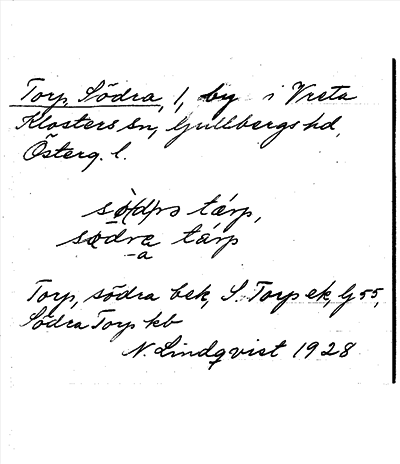 Torp, Södra, 1, by i Vreta
Klosters sn, Gullbergs hd,
Österg. l.
tárp,
södra tárp
-a
Torp, södra bek, S. Torp ek, G 55,
Södra Torp kb
N. Lindqvist 1928